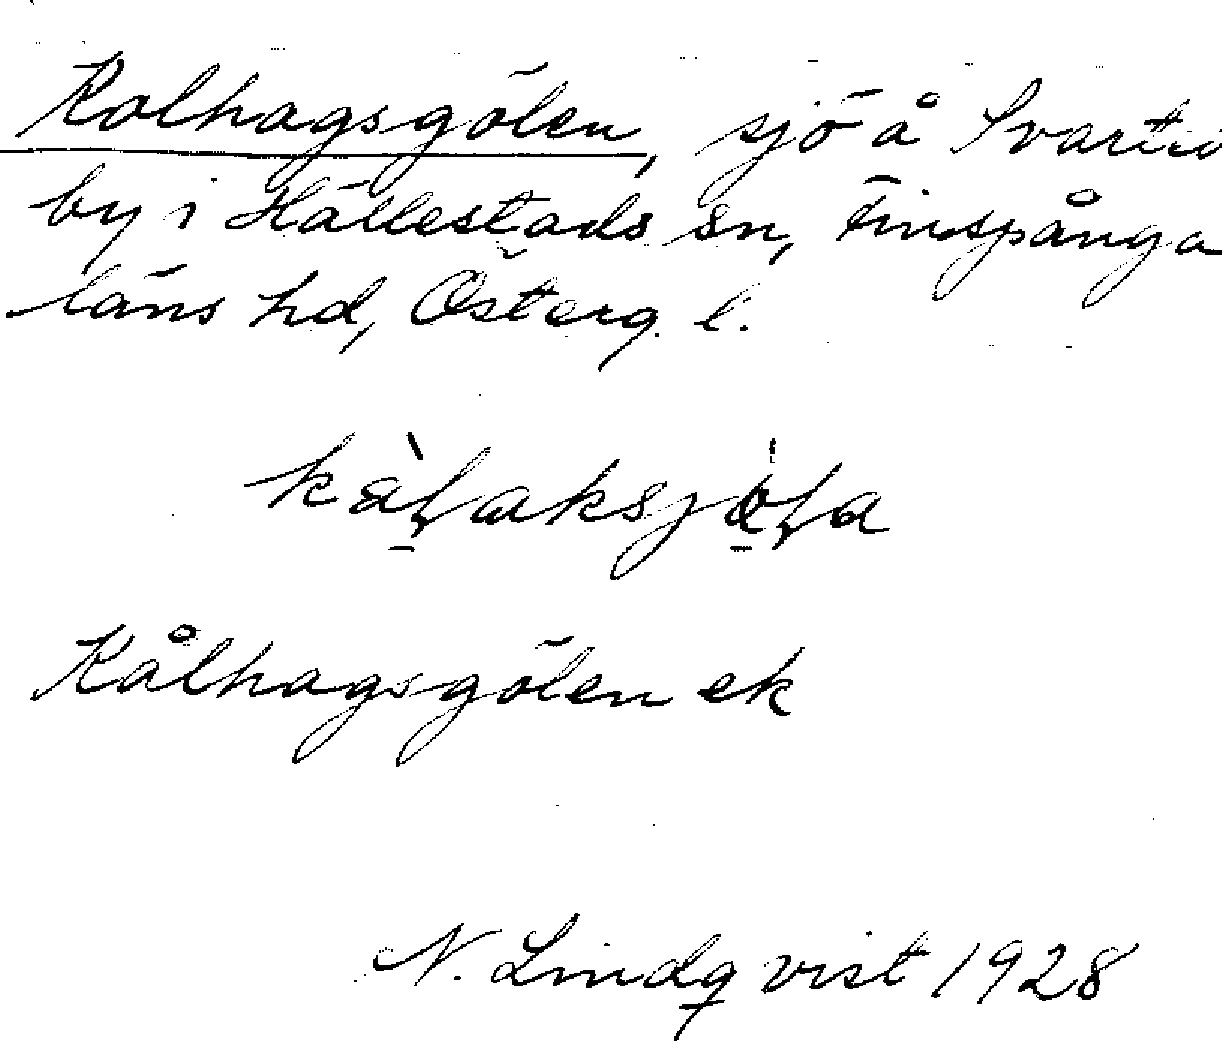 Kolhagsgölen, sjö å Svartvi
by i Hällestads sn, Finspånga
läns hd, Österg. l.
Kålhagsgölen ek
N. Lindqvist 1928